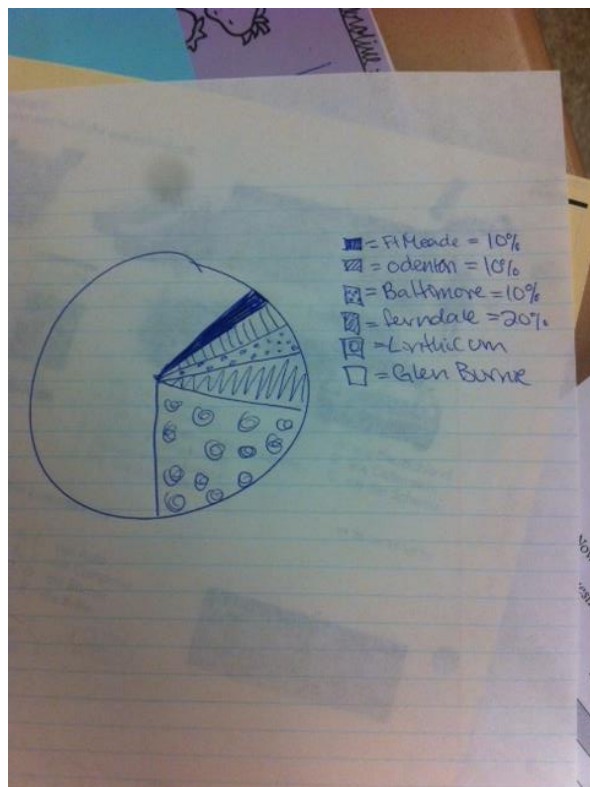 = Ft Meade = 10%
= odenton = 10%
= Baltimore = 10%
= ferndale = 20%
= Linthicum
= Glen Burnie